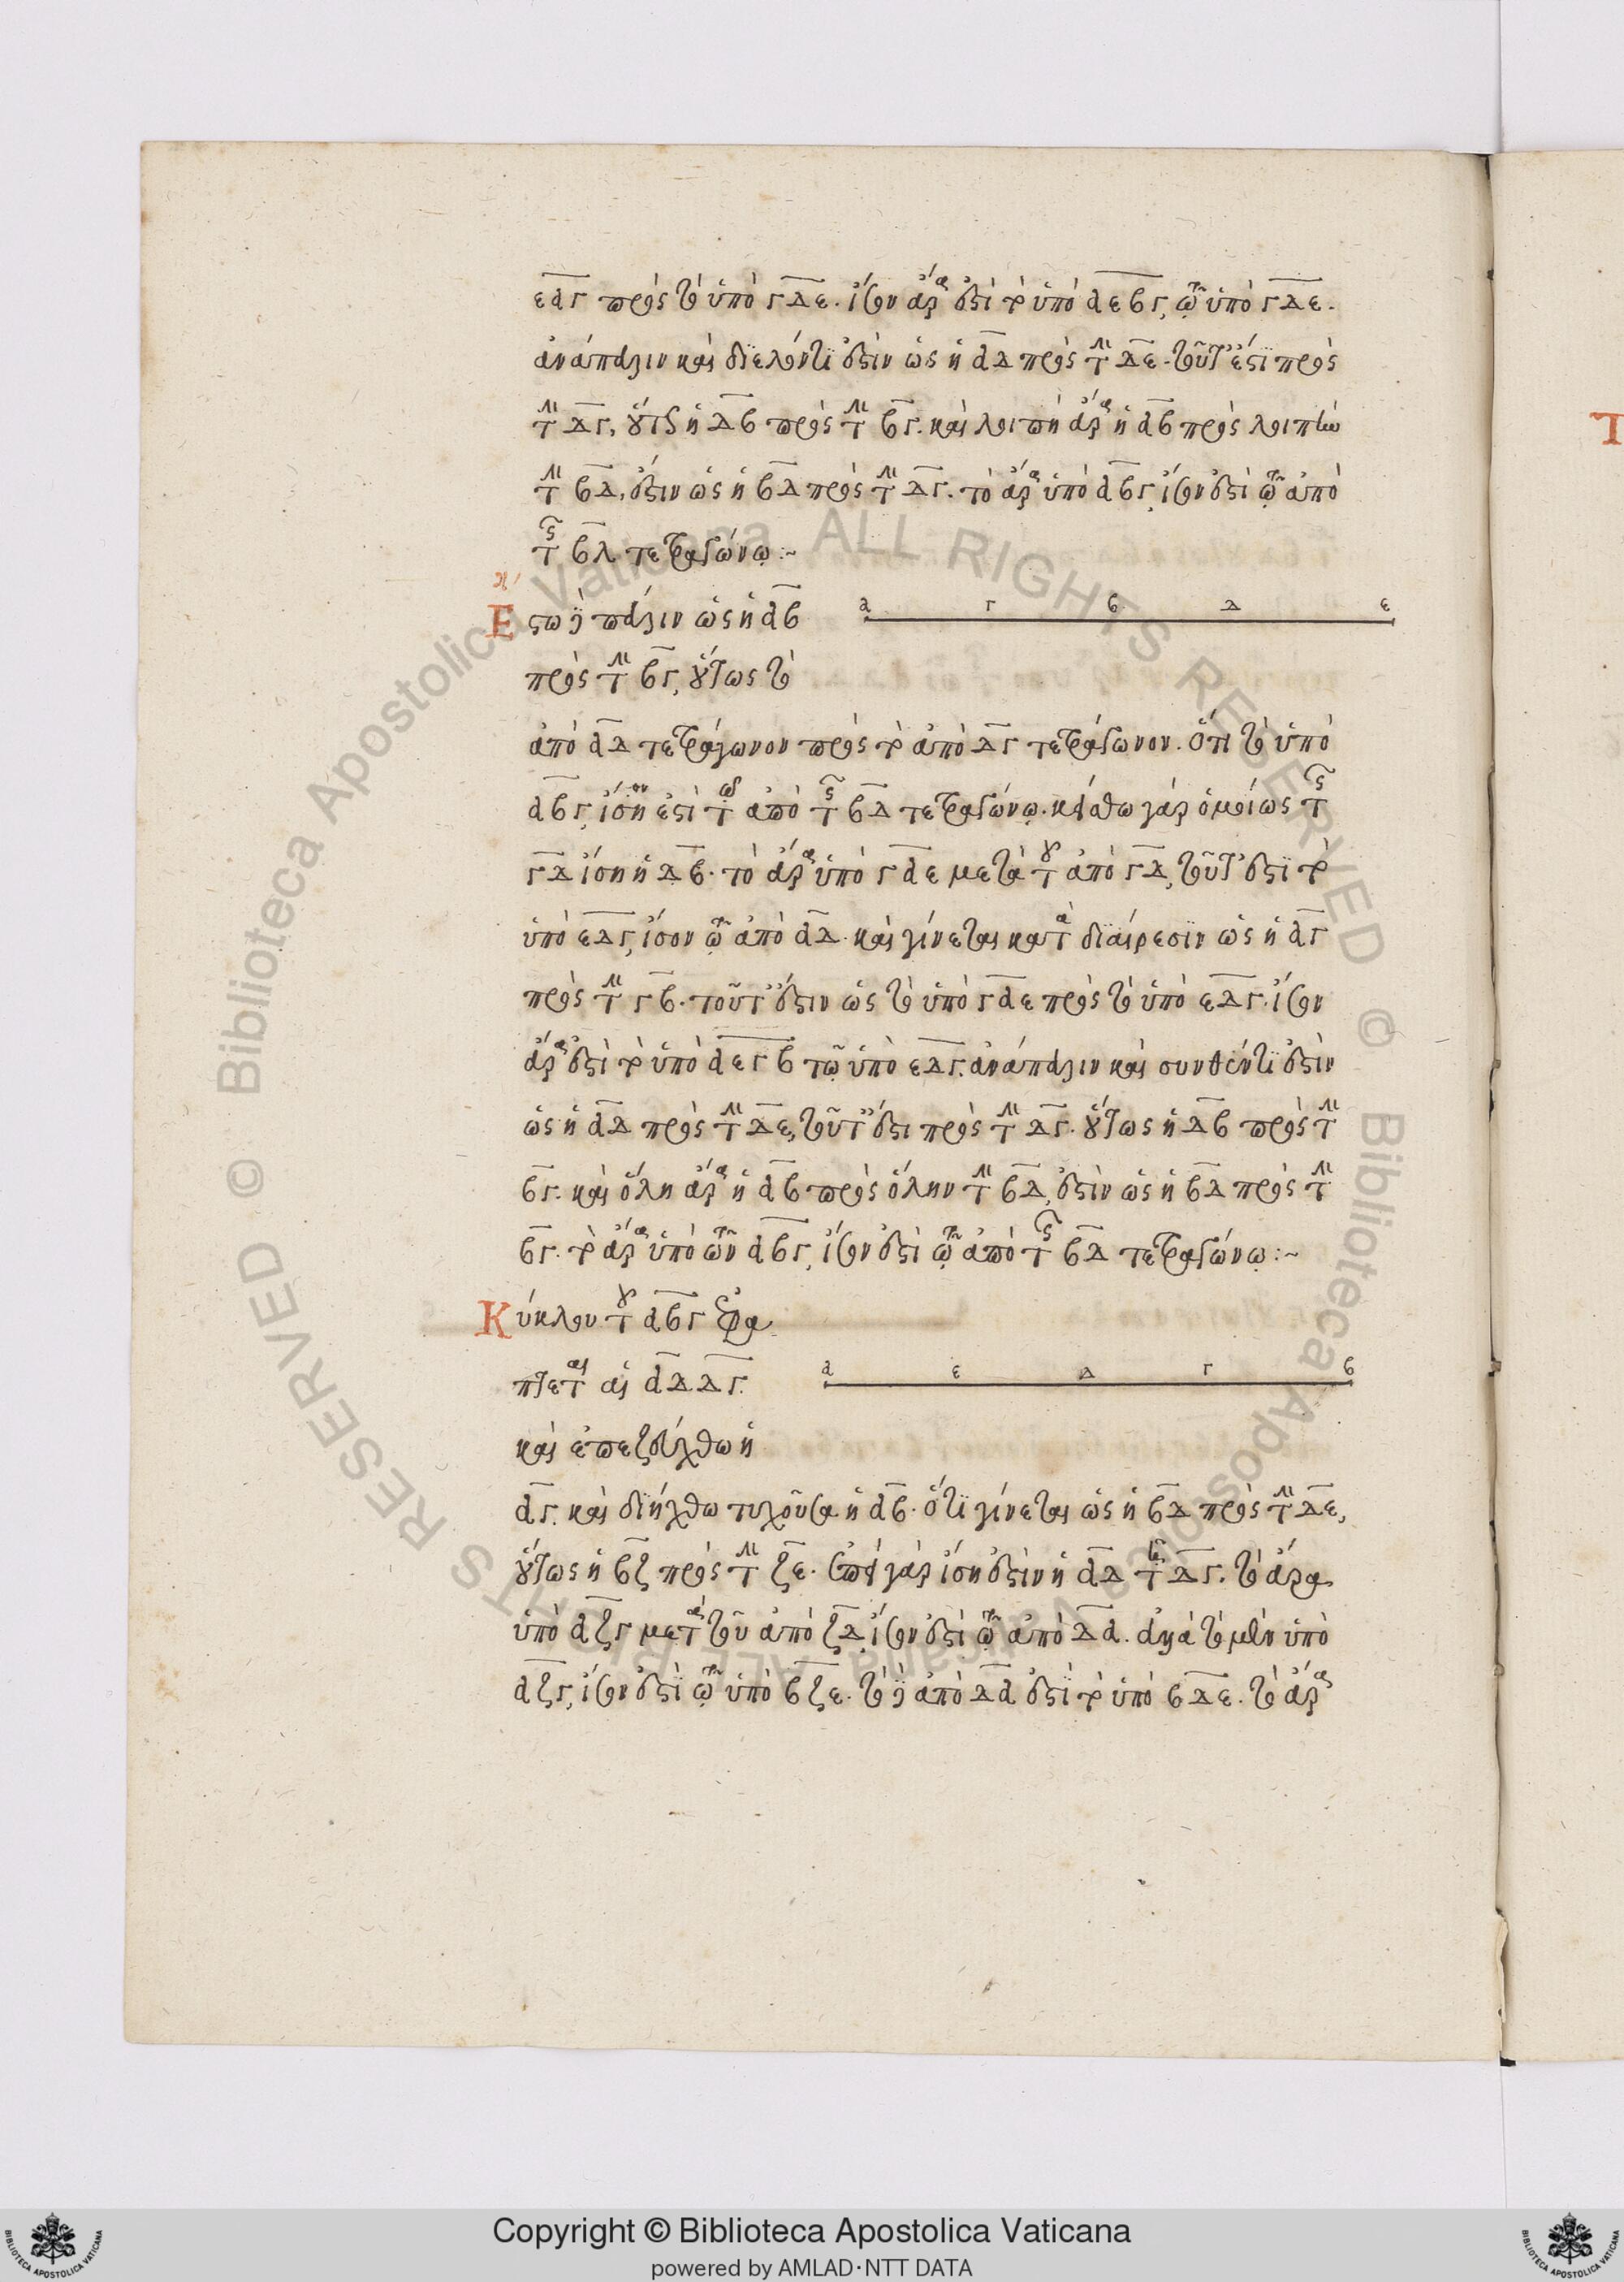 εαγ πρὸς τὸ ὑπὸ γδε. ἴσον ἄρα ἐστὶ τὸ ὑπὸ αε βγ, τῷ ὑπὸ γδε.
ἀνάπαλιν καὶ διελόντι ἐστὶν ὡς ἡ αδ πρὸς τὴν δε. τοῦτ' ἔστι πρὸς
τὴν δγ, οὕτως ἡ δβ πρὸς τὴν βγ. καὶ λοιπὴ ἄρα ἡ αβ πρὸς λοιπὴν
τὴν βδ, ἐστιν ὡς ἡ βδ πρὸς τὴν δγ. τὸ ἄρα ὑπὸ αβγ, ἴσον ἐστὶ τῷ ἀπὸ
τῆς βλ τετραγώνῳ :~
Ἔστω δὲ πάλιν ὡς ἡ αβ
α γ β δ ε
πρὸς τὴν βγ, οὕτως τὸ
ἀπὸ αδ τετράγωνον πρὸς τὸ ἀπὸ δγ τετράγωνον. ὅτι τὸ ὑπὸ
αβγ, ἴσον ἐστὶ τῷ ἀπὸ τῆς βδ τετραγώνῳ. κείσθω γὰρ ὁμοίως τῆς
γδ ἴση ἡ δβ. τὸ ἄρα ὑπὸ γαε μετὰ τοῦ ἀπὸ γδ, τοῦτ' ἐστὶ τὸ
ὑπὸ εδγ, ἴσον τῷ ἀπὸ αδ. καὶ γίνεται κατὰ διαίρεσιν ὡς ἡ αγ
πρὸς τὴν γβ. τοῦτ' ἔστιν ὡς τὸ ὑπὸ γαε πρὸς τὸ ὑπὸ εδγ. ἴσον
ἄρα ἐστὶ τὸ ὑπὸ αε γβ τῷ ὑπὸ εδγ. ἀνάπαλιν καὶ συνθέντι ἐστὶν
ὡς ἡ αδ πρὸς τὴν δε, τοῦτ' ἔστι πρὸς τὴν δγ. οὕτως ἡ δβ πρὸς τὴν
βγ. καὶ ὅλη ἄρα ἡ αβ πρὸς ὅλην τὴν βδ, ἐστὶν ὡς ἡ βδ πρὸς τὴν
βγ. τὸ ἄρα ὑπὸ τῶν αβγ, ἴσον ἐστὶ τῷ ἀπὸ τῆς βδ τετραγώνῳ :~
Κύκλου τοῦ αβγ ἐφα
πτεται αἱ αδ δγ.
α ε δ γ β
καὶ ἐπεζεύχθω ἡ
αγ. καὶ διήχθω τυχοῦσα ἡ αβ. ὅτι γίνεται ὡς ἡ βδ πρὸς τὴν δε,
οὕτως ἡ βζ πρὸς τὴν ζε. ἐπεὶ γὰρ ἴση ἐστὶν ἡ αδ τῇ δγ. τὸ ἄρα
ὑπὸ αζγ μετὰ τοῦ ἀπὸ ζδ, ἴσον ἐστὶ τῷ ἀπὸ δα. ἀλλὰ τὸ μὲν ὑπὸ
αζγ, ἴσον ἐστὶ τῷ ὑπὸ βζε. τὸ δὲ ἀπὸ δα ἐστὶ τὸ ὑπὸ βδε. τὸ ἄρα
Copyright © Biblioteca Apostolica Vaticana
powered by AMLAD·NTT DATA